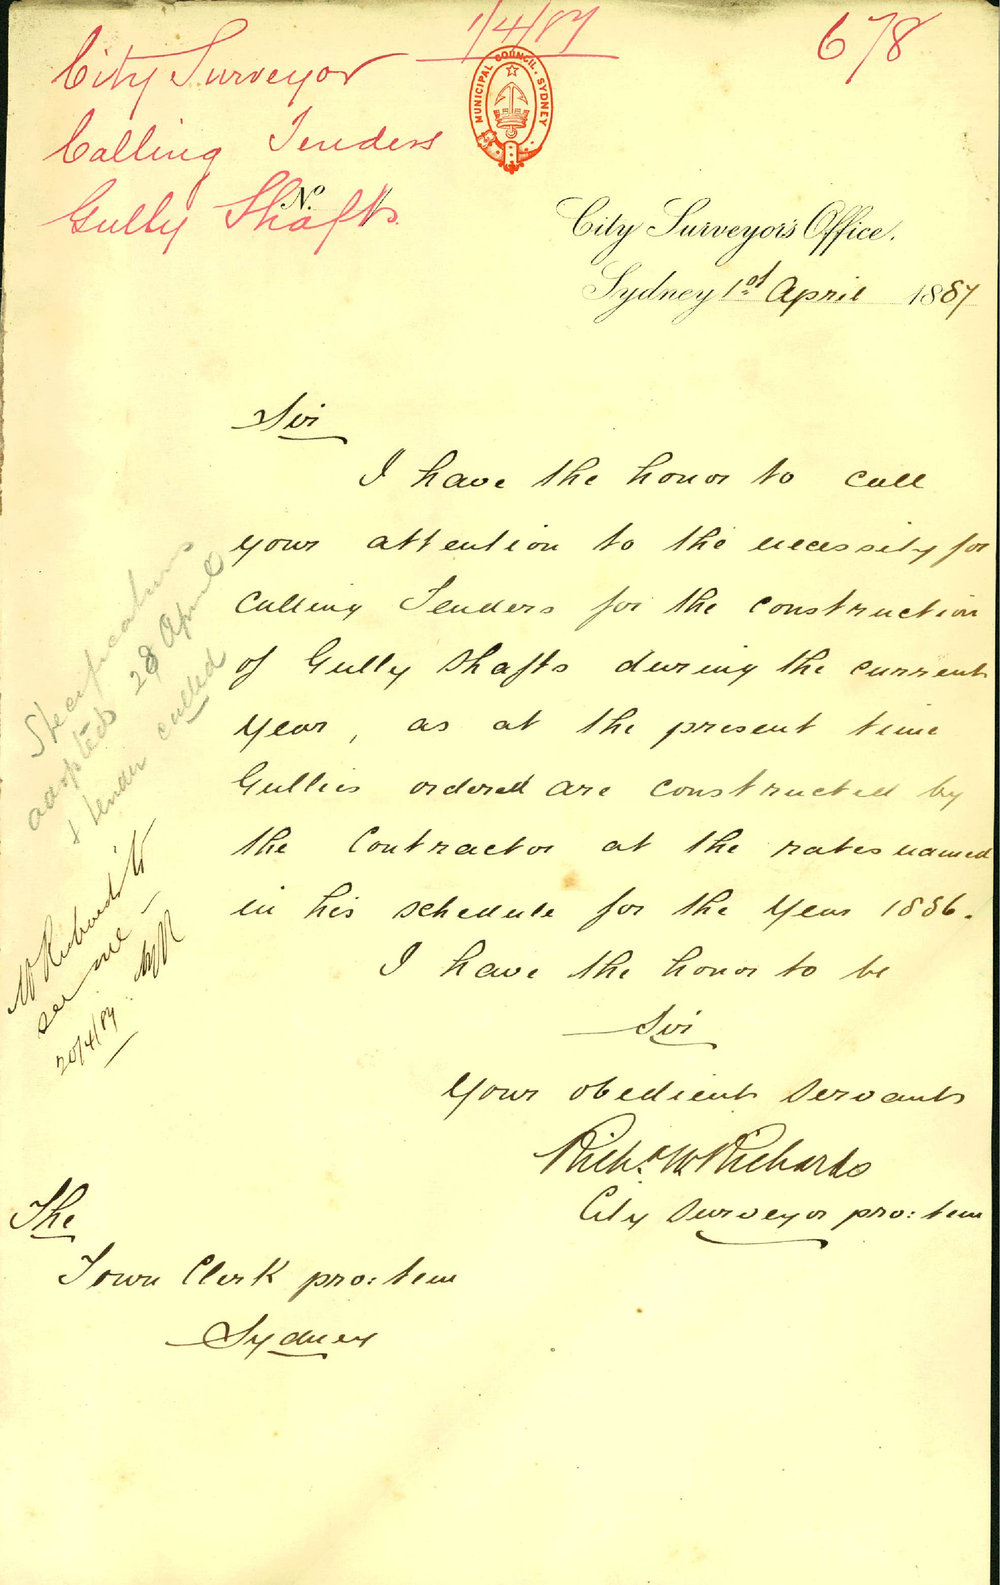 1/4/87
678
City Surveyor
Calling Tenders
Gully Shafts
MUNICIPAL COUNCIL. SYDNEY
No.
City Surveyor's Office.
Sydney 1st April 1887
Sir
I have the honor to call
your attention to the necessity for
calling Tenders for the construction
of Gully Shafts during the current
year, as at the present time
Gullies ordered are constructed by
the Contractor at the rates named
in his schedule for the Year 1886.
I have the honor to be
Sir
Your obedient servant
Richd. W Richards
City Surveyor pro: tem
The
Town Clerk pro: tem
Sydney
Specifications
adopted 28 April
& tender called
see me
20/4/87